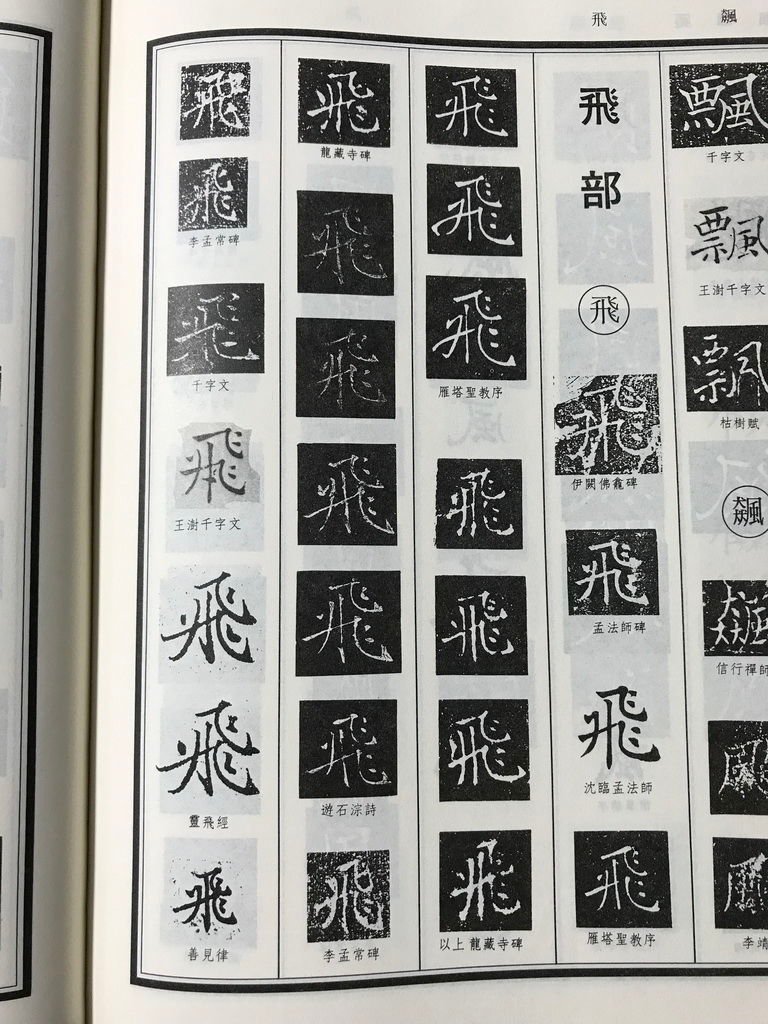 飆
飛
飄
千字文
飄
王澍千字文
飄
枯樹賦
飆
飆
信行禪師
李靖
飛部
飛
飛
伊闕佛龕碑
飛
孟法師碑
飛
沈臨孟法師
飛
雁塔聖教序
飛
飛
飛
雁塔聖教序
飛
飛
飛
飛
以上龍藏寺碑
飛
龍藏寺碑
飛
飛
飛
飛
飛
遊石淙詩
飛
李孟常碑
飛
飛
李孟常碑
飛
千字文
飛
王澍千字文
飛
飛
靈飛經
飛
善見律